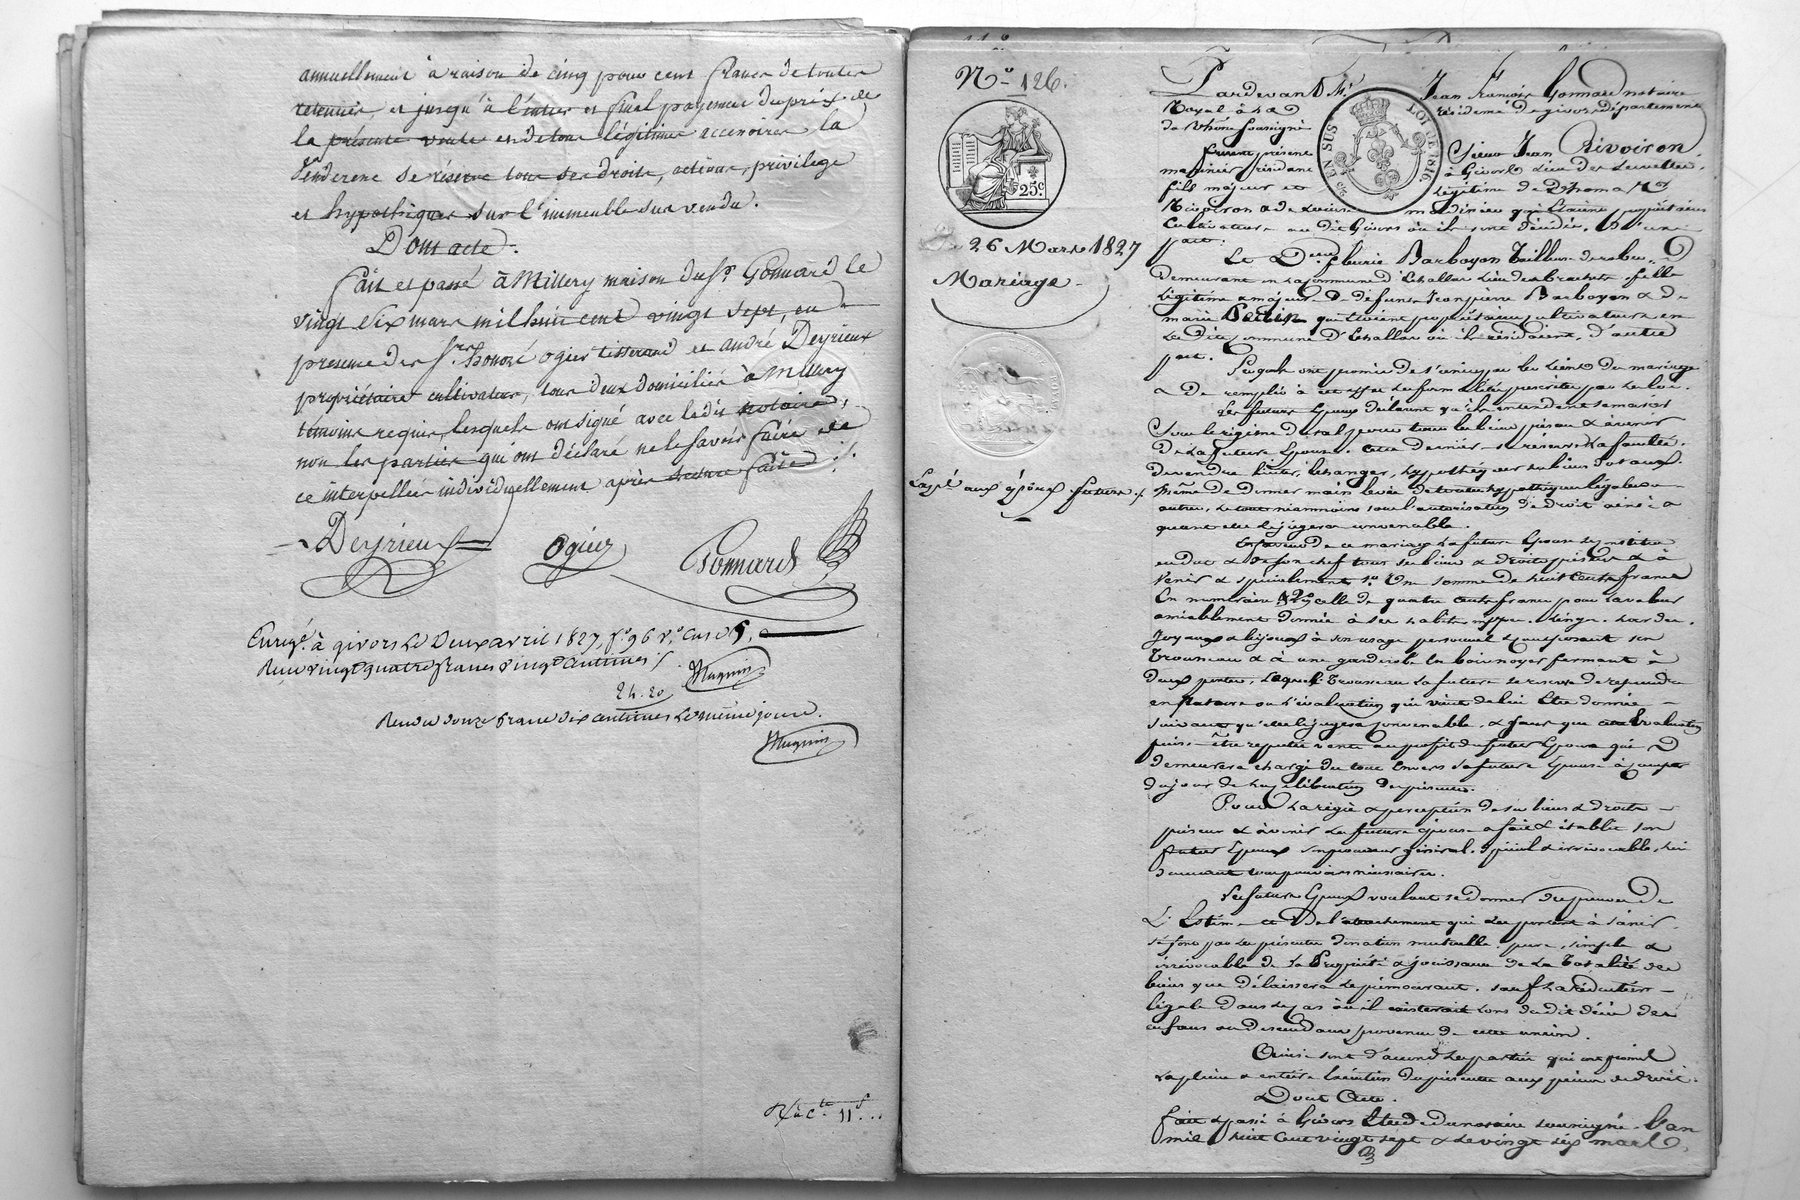 annuellement à raison de cinq pour cent franer de toutes
retenues, et jusqu'à l'entier et final payement du prix de
la présente vente et de tous légitimes accessoires la
Venderesse se réserve tous ses droits, actions, privilege
et hypothèques sur l'immeuble sus vendu.
Dont acte.
fait et passé à Millery maison du Sr. Gonnard le
vingt six mars mil huit cent vingt sept, en
présence des Srs. honoré ogier tisserand et andré Deyrieux
propriétaire cultivateur, tous deux domiciliés à Millery
témoins requis, lesquels ont signé avec ledit notaire,
non les parties qui ont déclaré ne le savoir faire de
ce interpellées individuellement après lecture faite ./.
Deyrieux Ogier Gonnard
Enregé. à givors le Deux avril 1827, fo. 96 vo. Case 5,
Reçu vingt quatre francs vingt centimes
24.20
Rendu douze francs dix centimes le même jour.
No. 126.
25c.
EN SUS
LOI DE 1816
26 Mars 1827
Mariage
Expé. aux époux futurs
Pardevant Me. Jean françois Gonnard notaire
Royal à la résidence de givors département
du Rhône soussigné
furent présens Sieur Jean Rivoiron
marinier résidant à Givors lieu des
fils majeur et légitime de Thomas
Rivoiron & de
Cultivateurs audit Givors où ils sont décédés, D'une
part.
Et Dlle. fleurie Barboyon Tailleuse de robes,
Demeurant en la commune d'Echallas lieu des fille
légitime & majeure de défunts Jean pierre Barboyon & de
marie qui étoient propriétaires cultivateurs en
la dite commune d'Echallas où ils résidoient, d'autre
part.
Lesquels ont promis de s'unir par les liens du mariage
& de remplir à cet effet les formalités prescrites par la loi.
Les futurs époux déclarent qu'ils entendent se marier
Sous le régime dotal pour tous les biens présens & à venir
de la future épouse. cette dernière se réserve la faculté
de vendre, liciter, échanger, hypothéquer ses biens dotaux
même de donner main levée de toutes hypothèques légales ou
autres, le tout néanmoins sous l'autorisation de droit ainsi &
quand elle le jugera convenable.
En faveur de ce mariage la future épouse se constitue
en dot & de son chef tous ses biens & droits présens & à
venir & spécialement 1o. Une somme de huit cents francs
En numéraire & 2o. celle de quatre cents francs pour la valeur
amiablement donnée à ses habits, nippes, linges, hardes,
Joyaux & bijoux à son usage personnel & composant son
Trousseau & à une garderobe en bois noyer fermant à
deux portes, lequel Trousseau la future se réserve de reprendre
en nature ou l'évaluation qui vient de lui être donnée
suivant qu'elle le jugera convenable, & sans que cette évaluation
puisse être réputée vente au profit du futur Epoux qui
demeurera chargé du tout envers sa future Epouse à compter
du jour de la célébration
Pour la régie & perception de ses biens & droits
présens & à venir la future épouse a fait & établit son
futur Epoux son procureur général, spécial & irrévocable, lui
donnant tous pouvoirs nécessaires.
Les futurs Epoux voulant se donner des preuves de
L'Estime & de l'attachement qui les portent à s'unir
se font par les présentes donation mutuelle, pure, simple &
irrévocable de la Propriété & jouissance de la Totalité des
biens que délaissera le prémourant, sauf la réduction
légale dans le cas où il existerait lors dudit décès des
enfans ou descendans provenus de cette union.
Ainsi sont d'accord les parties qui ont promis
la pleine & entière Exécution des présentes aux peines de droit.
Dont Acte.
fait & passé à Givors Etude du notaire soussigné l'an
mil huit cent vingt sept & le vingt six mars